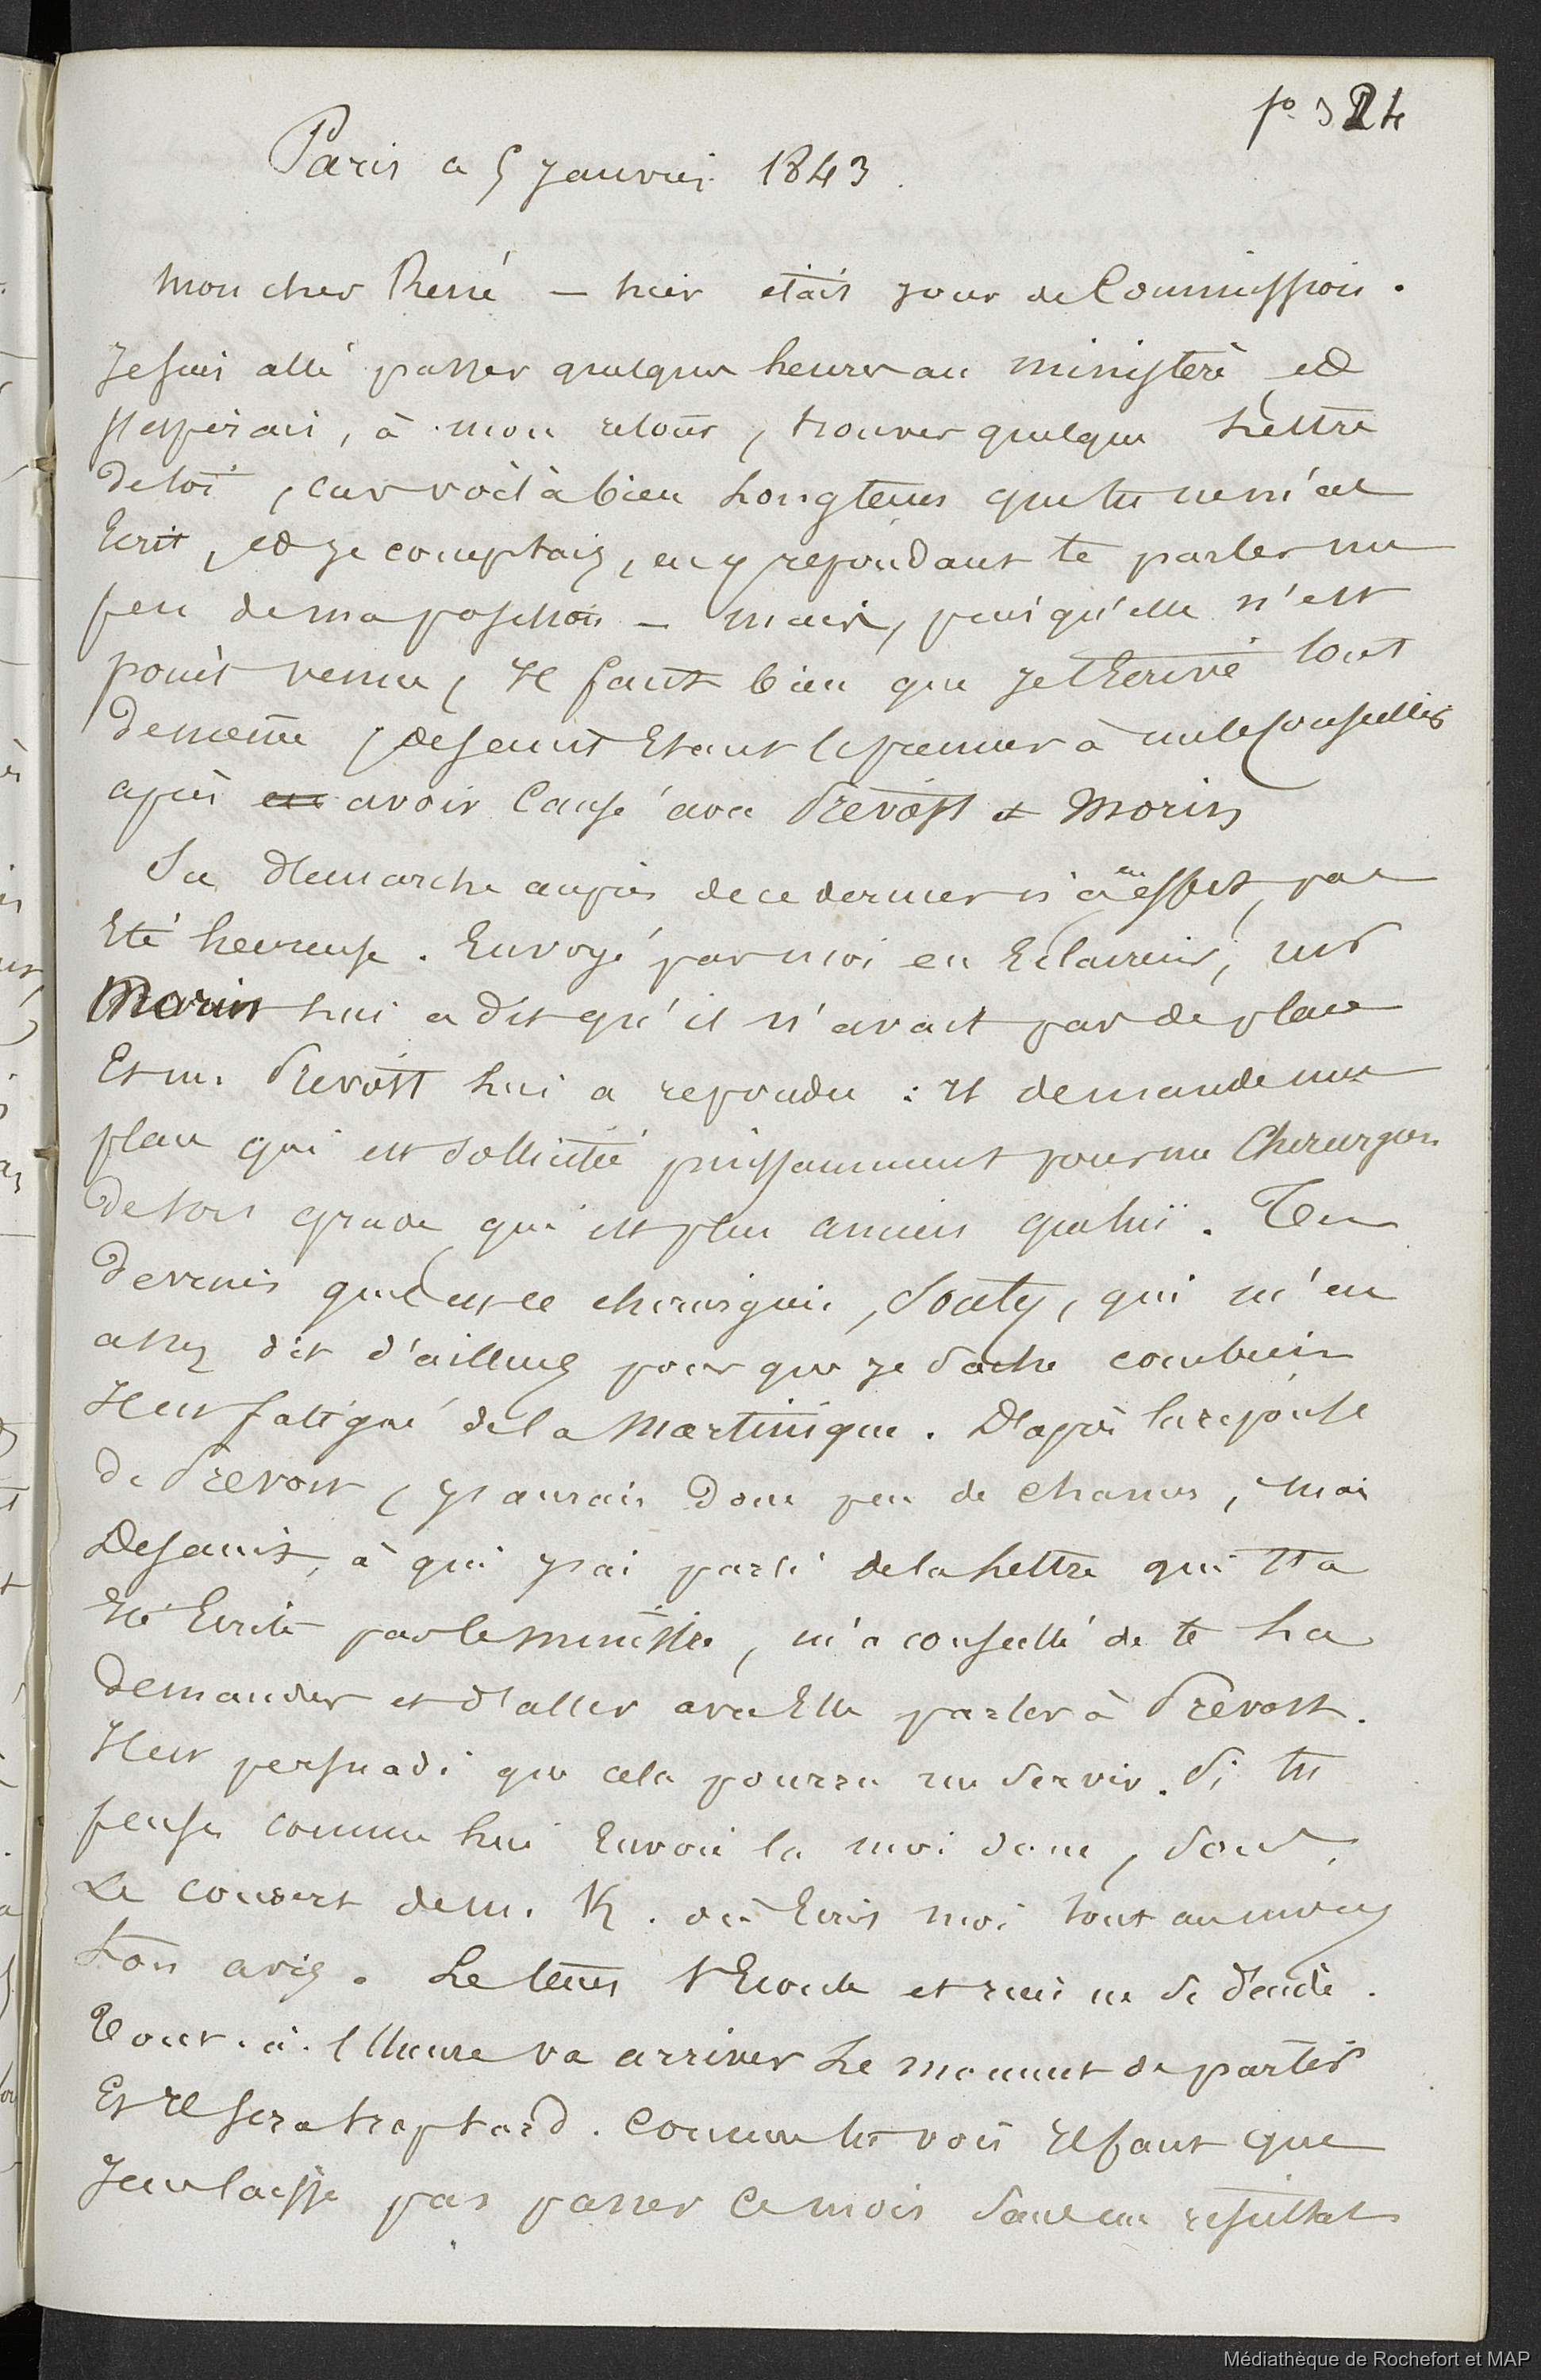 fo 324
Paris ce 5 Janvier 1843.
Mon cher René — hier était jour de Commission.
Je suis allé passer quelques heures au ministère et
J'espérais, à mon retour, trouver quelque Lettre
de toi, car voilà bien Longtems que tu ne m'as
Ecrit, et je comptais, en y repondant te parler un
peu de ma position — mais, puisqu'elle n'est
point venue, Il faut bien que je t'Ecrive tout
de même, Desaint Etant le premier à me le conseiller
après en avoir Causé avec Prevost et Morin
Sa Démarche auprès de ce dernier n'a en effet, pas
Eté heureuse. Envoyé par moi en Eclaireur, Mr
Morin Lui a dit qu'il n'avait pas de place
Et m. Prevost Lui a repondu : Il demande une
place qui est Sollicitée puissamment pour un Chirurgien
de son grade qui est plus ancien que lui. Tu
devines quel est ce chirurgien, Souty, qui m'en
assez dit d'ailleurs pour que je Sache combien
Il est fatigué de la Martinique. D'après la reponse
de Prevost, J'aurais donc peu de chances, mais
Desaint, à qui J'ai parlé de la Lettre qui t'a
été Ecrite par le ministre, m'a conseillé de te La
demander et d'aller avec Elle parler à Prevost.
Il est persuadé que cela pourra me Servir. Si tu
penses comme Lui Envoie la moi donc, Sous
Le couvert de M. K. ou Ecris moi tout au moins
ton avis. Le tems S'Ecoule et rien ne Se décide.
Tout-à-l'heure va arriver Le moment de partir
Et Il Sera trop tard. Comme tu vois Il faut que
Je ne laisse pas passer Ce mois Sans un résultat
Médiathèque de Rochefort et MAP